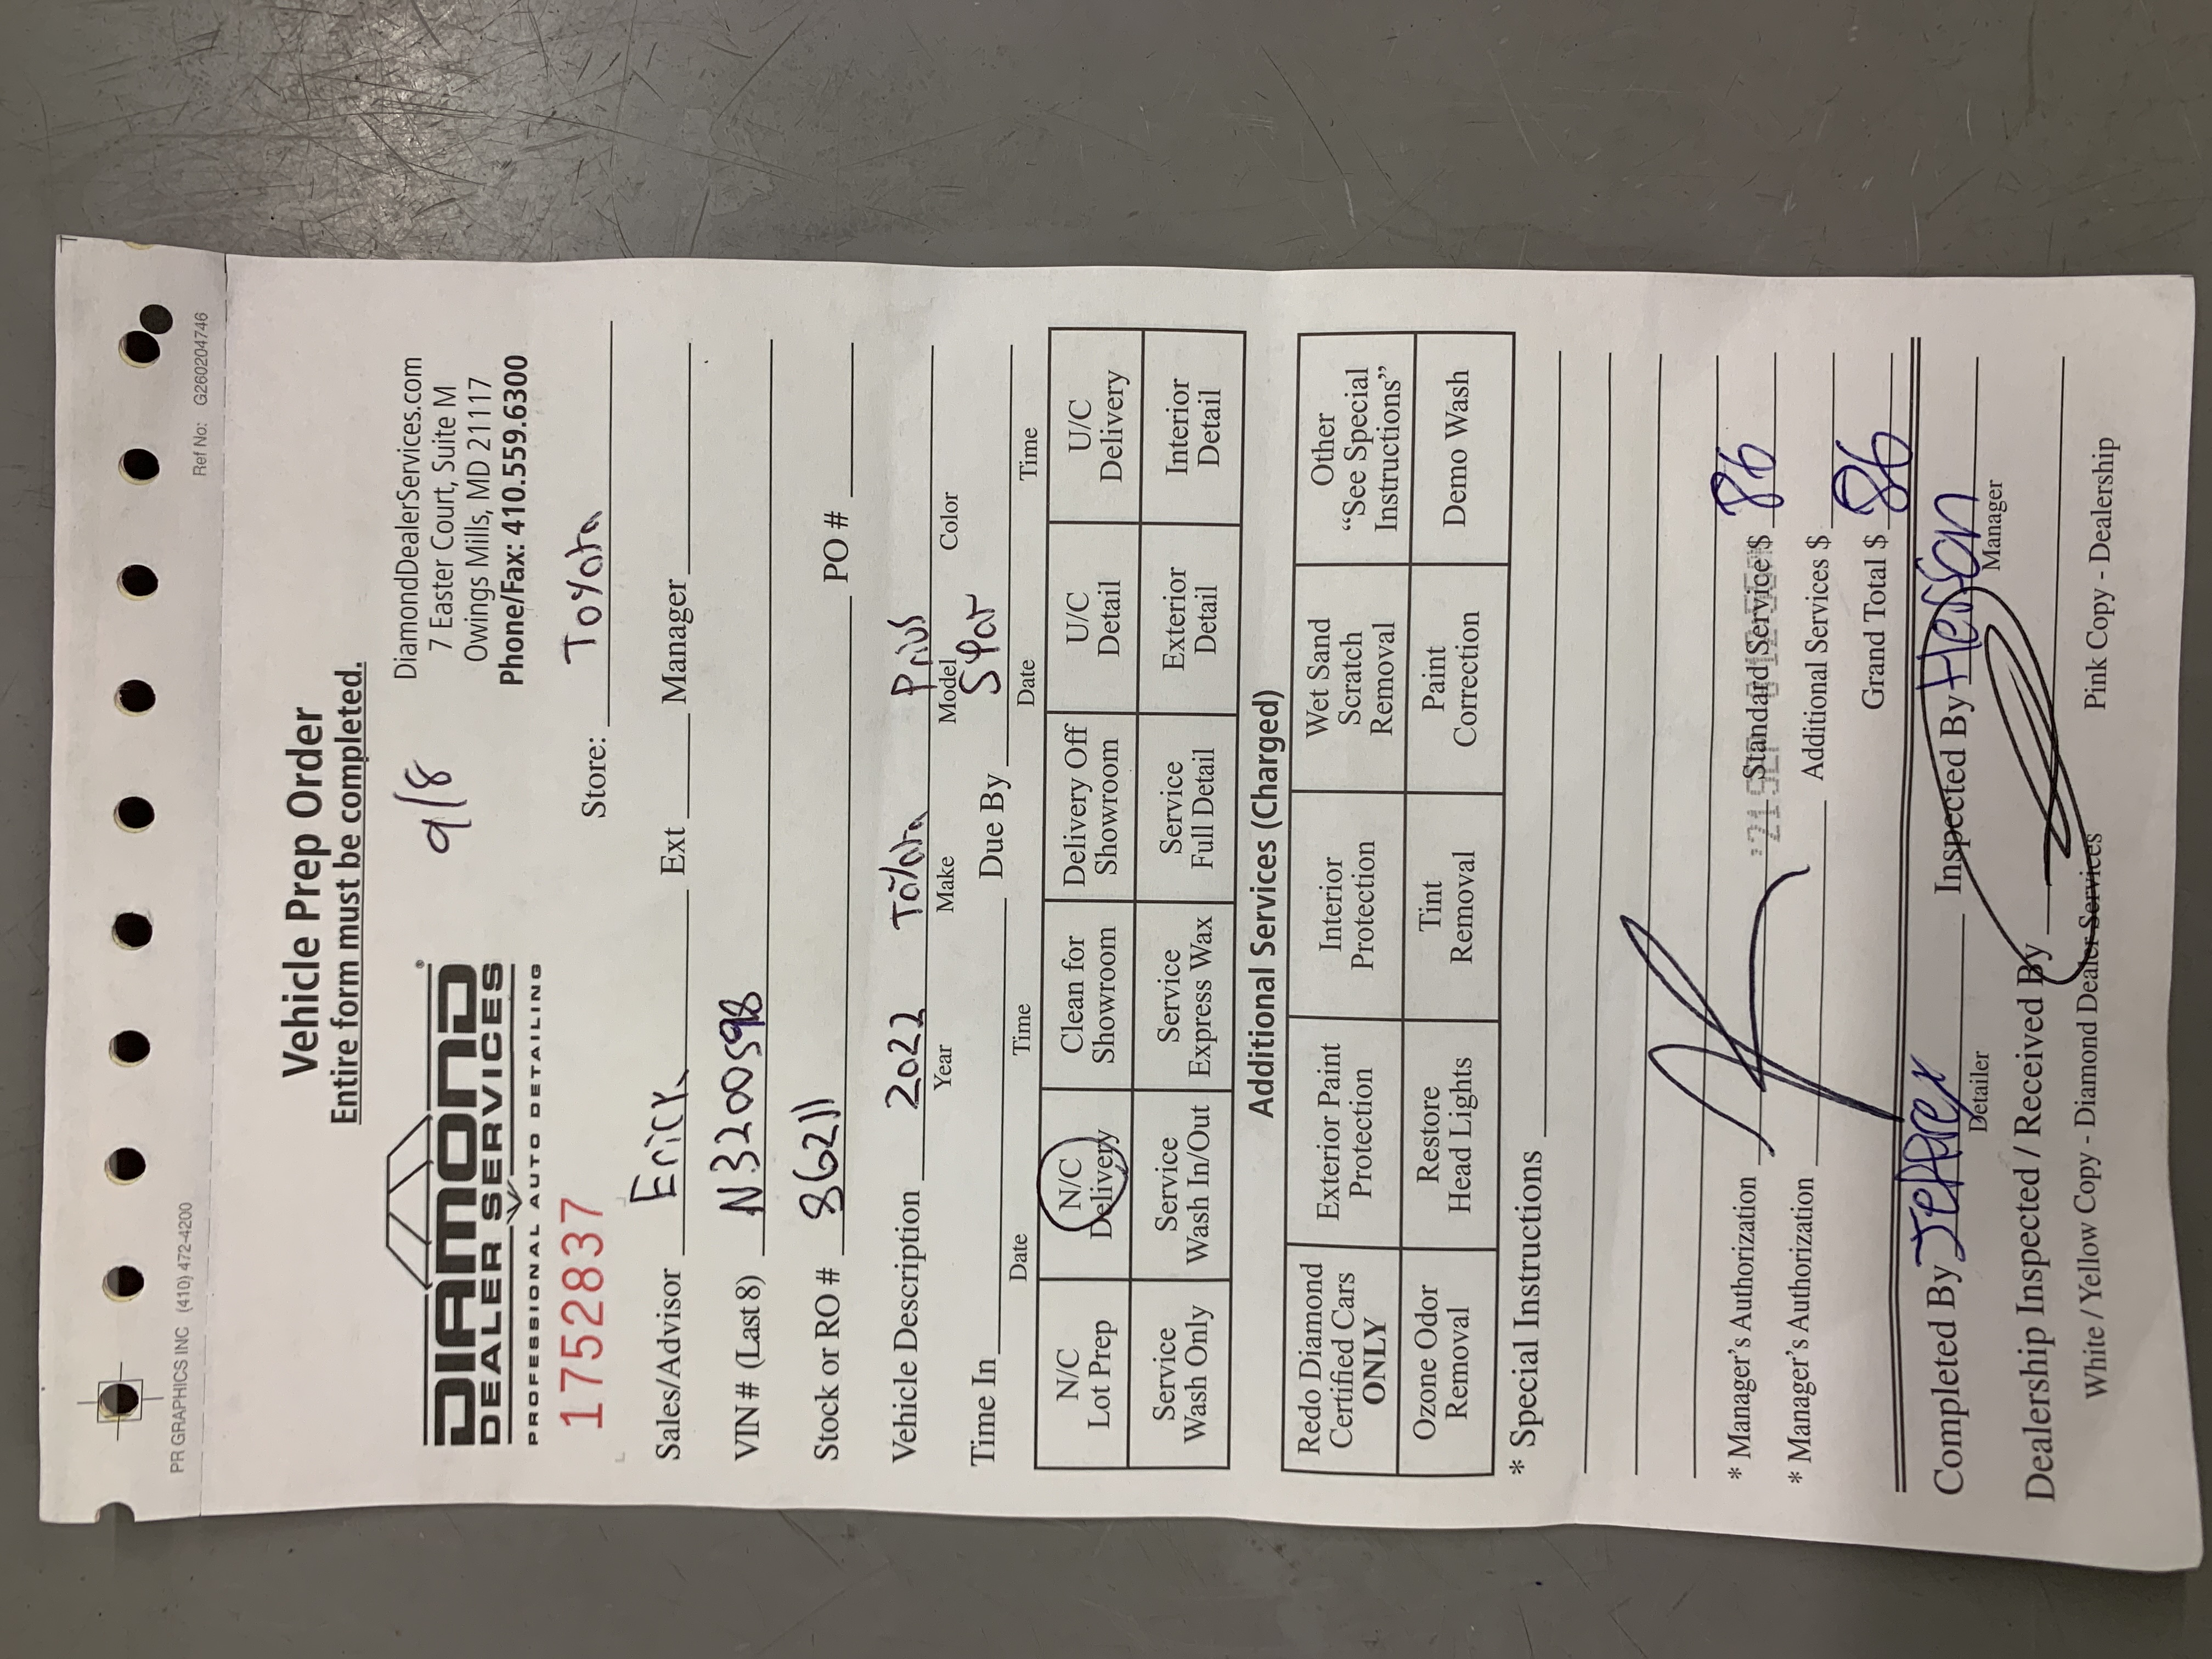 PR GRAPHICS INC (410) 472-4200 Ref No: G260204746
Vehicle Prep Order
Entire form must be completed.
DIAMOND®
DEALER SERVICES
PROFESSIONAL AUTO DETAILING
9/8
DiamondDealerServices.com
7 Easter Court, Suite M
Owings Mills, MD 21117
Phone/Fax: 410.559.6300
1752837
Store: Toyota
Sales/Advisor Erick Ext Manager
VIN # (Last 8) N3200598
Stock or RO # 86211 PO #
Vehicle Description 2022 Toyota Prius
Year Make Model Color
Time In Due By 5 Par
Date Time Date Time
N/C Lot Prep N/C Delivery Clean for Showroom Delivery Off Showroom U/C Detail U/C Delivery
Service Wash Only Service Wash In/Out Service Express Wax Service Full Detail Exterior Detail Interior Detail
Additional Services (Charged)
Redo Diamond Certified Cars ONLY Exterior Paint Protection Interior Protection Wet Sand Scratch Removal Other "See Special Instructions"
Ozone Odor Removal Restore Head Lights Tint Removal Paint Correction Demo Wash
* Special Instructions
* Manager's Authorization Standard Service $ 86
* Manager's Authorization Additional Services $
Grand Total $ 86
Completed By Jeffrey Inspected By
Detailer Manager
Dealership Inspected / Received By
White / Yellow Copy - Diamond Dealer Services Pink Copy - Dealership